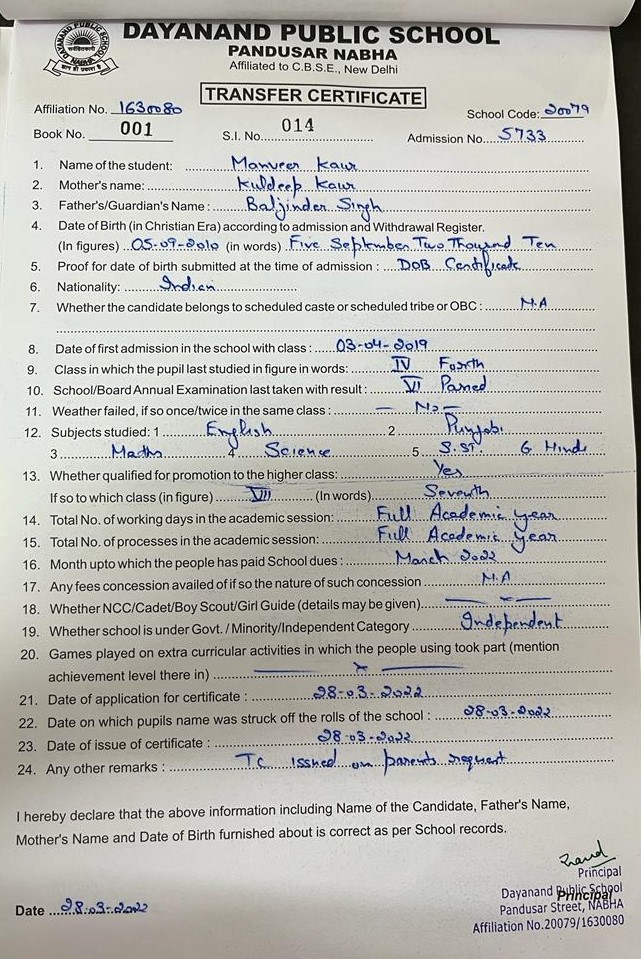 DAYANAND PUBLIC SCHOOL
PANDUSAR NABHA
Affiliated to C.B.S.E., New Delhi
TRANSFER CERTIFICATE
Affiliation No. 1630080 School Code: 20079
Book No. 001 S.I. No. 014 Admission No. 5733
1. Name of the student: Manveer Kaur
2. Mother's name: Kuldeep Kaur
3. Father's/Guardian's Name : Baljinder Singh
4. Date of Birth (in Christian Era) according to admission and Withdrawal Register.
(In figures) 05-09-2010 (in words) Five September Two Thousand Ten
5. Proof for date of birth submitted at the time of admission : DOB Certificate
6. Nationality: Indian
7. Whether the candidate belongs to scheduled caste or scheduled tribe or OBC : N.A
8. Date of first admission in the school with class : 03-04-2019
9. Class in which the pupil last studied in figure in words: IV Forth
10. School/Board Annual Examination last taken with result : VI Passed
11. Weather failed, if so once/twice in the same class : — No —
12. Subjects studied: 1 English 2 Punjabi
3 Maths 4 Science 5 S.ST. 6 Hindi
13. Whether qualified for promotion to the higher class: Yes
If so to which class (in figure) VII (In words) Seventh
14. Total No. of working days in the academic session: Full Academic year
15. Total No. of processes in the academic session: Full Academic year
16. Month upto which the people has paid School dues : March 2022
17. Any fees concession availed of if so the nature of such concession N.A
18. Whether NCC/Cadet/Boy Scout/Girl Guide (details may be given) — —
19. Whether school is under Govt. / Minority/Independent Category Independent
20. Games played on extra curricular activities in which the people using took part (mention
achievement level there in) — x —
21. Date of application for certificate : 28-03-2022
22. Date on which pupils name was struck off the rolls of the school : 28-03-2022
23. Date of issue of certificate : 28-03-2022
24. Any other remarks : TC issued on parents request
I hereby declare that the above information including Name of the Candidate, Father's Name,
Mother's Name and Date of Birth furnished about is correct as per School records.
Principal
Dayanand Public School
Principal
Pandusar Street, NABHA
Date 28-03-2022
Affiliation No.20079/1630080